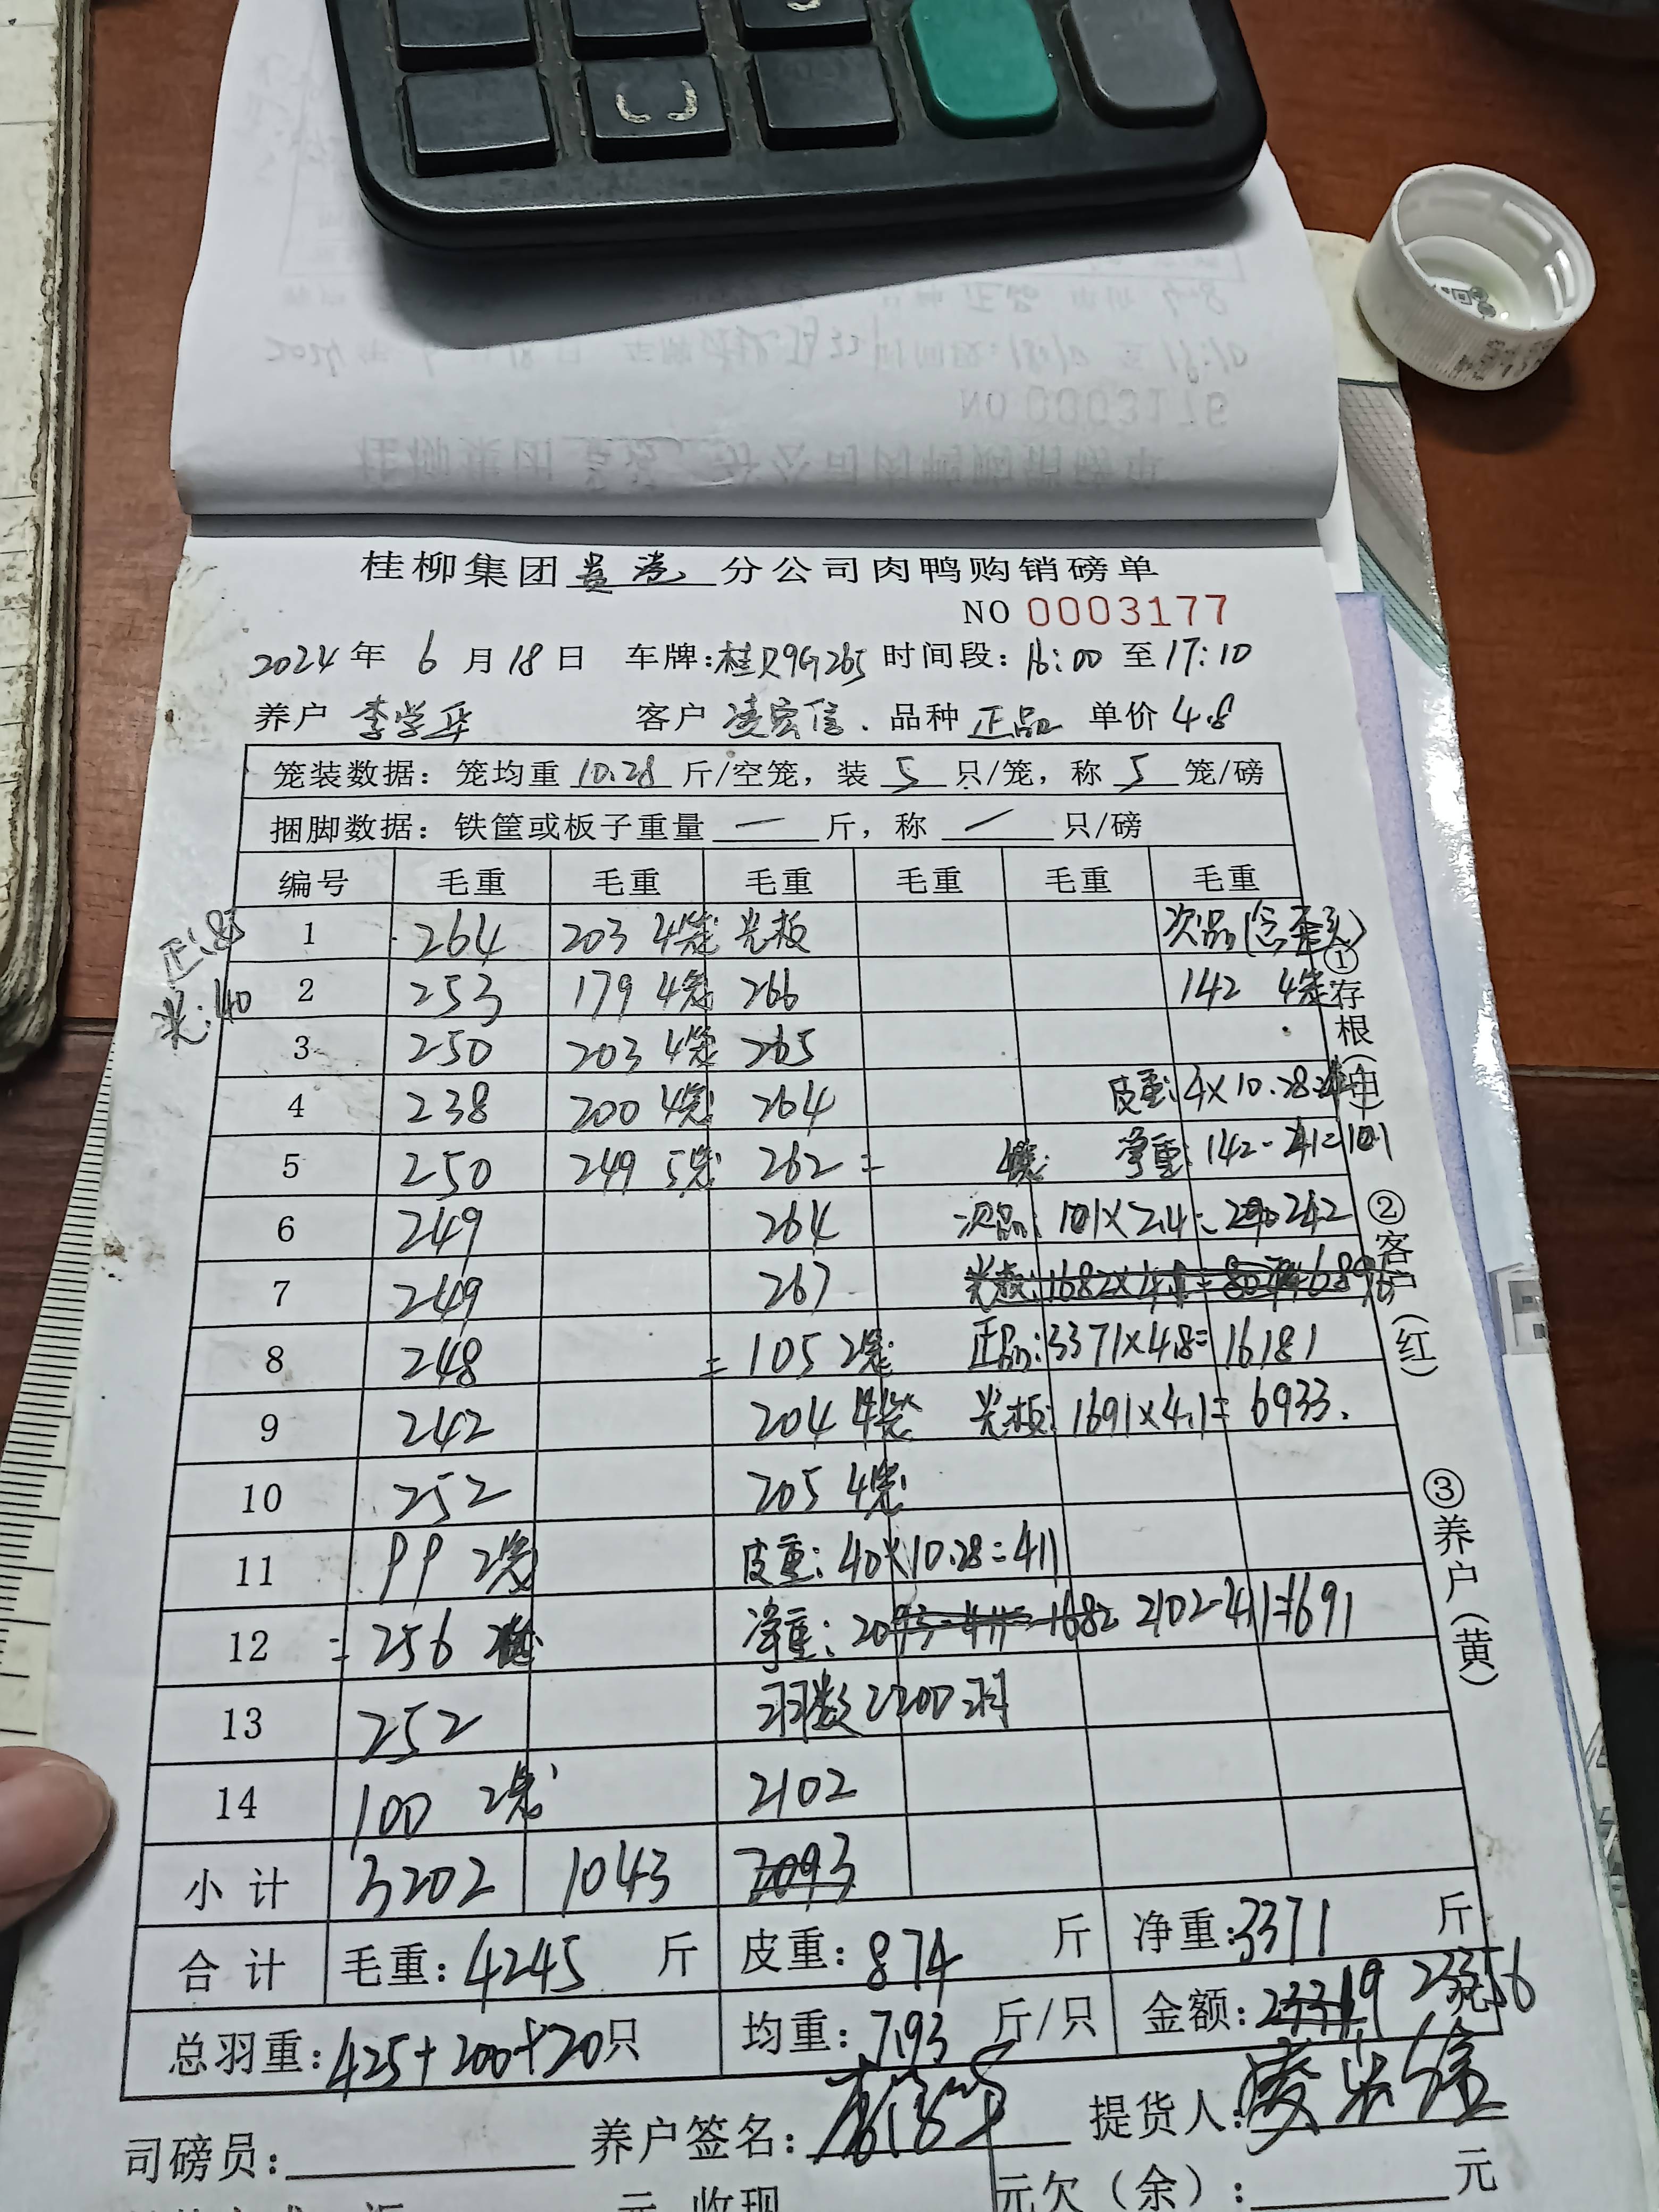 桂柳集团贵港分公司肉鸭购销磅单
NO 0003177
2024年 6月18日 车牌:桂R9G265 时间段:16:00至17:10
养户 李学华 客户 凌宏信 品种 正品 单价 4.8
笼装数据：笼均重 10.28 斤/空笼，装 5 只/笼，称 5 笼/磅
捆脚数据：铁筐或板子重量 — 斤，称 — 只/磅
编号 毛重 毛重 毛重 毛重 毛重 毛重
正:85
光:40
1 264 203 4笼 光板 次品(含歪头)
2 253 179 4笼 266 142 4笼
3 250 203 4笼 265
4 238 200 4笼 264 皮重:4×10.28=41
5 250 249 5笼 262= 净重:142-41=101
6 249 264 次品:101×2.4=242
7 249 267 光板:1682×4.1=6896
8 248 =105 2笼 正品:3371×4.8=16181
9 242 204 4笼 光板:1691×4.1=6933.
10 252 205 4笼
11 99 2笼 皮重:40×10.28=411
12 =256 净重:2093-411=1682 2102-411=1691
13 252 羽数:200羽
14 100 2笼 2102
小计 3202 1043 2093
合计 毛重:4245 斤 皮重:874 斤 净重:3371 斤
总羽重:425+200+20只 均重:7.93 斤/只 金额:23319 23356
司磅员: 养户签名: 提货人:
元 收现 元欠（余）: 元
①存根(白)
②客户(红)
③养户(黄)